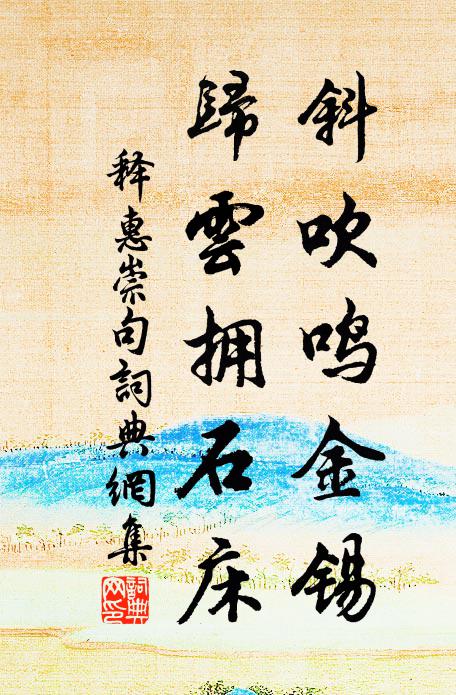 斜吹鸣金锡
歸雲拥石床
释惠崇句詞典網集
詞典网印